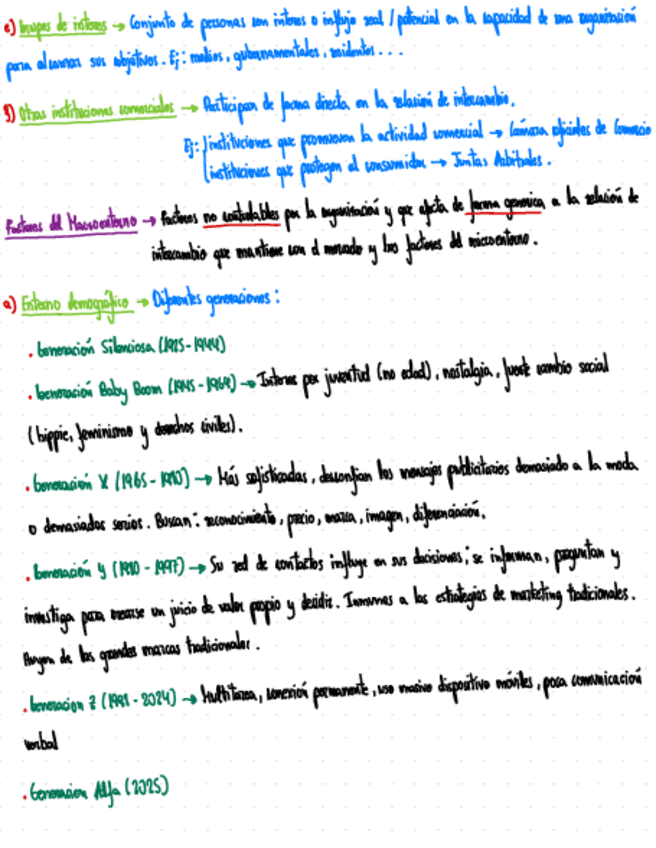 e) Grupos de interes → Conjunto de personas con interes o influjo real / potencial en la capacidad de una organización
para alcanzar sus objetivos. Ej: medios, gubernamentales, residentes...
g) Otras instituciones comerciales → Participan de forma directa en la relación de intercambio.
Ej: instituciones que promueven la actividad comercial → Cámara oficiales de Comercio
instituciones que protegen al consumidor → Juntas Arbitrales.
Factores del Macroentorno → Factores no controlables por la organización y que afecta de forma generica a la relación de
intercambio que mantiene con el mercado y los factores del microentorno.
a) Entorno demográfico → Diferentes generaciones:
. Generación Silenciosa (1925-1944)
. Generación Baby Boom (1945-1964) → Interes por juventud (no edad), nostalgia, fuerte cambio social
(hippie, feminismo y derechos civiles).
. Generación X (1965-1980) → Más sofisticadas, desconfian los mensajes publicitarios demasiado a la moda
o demasiados serios. Buscan: reconocimiento, precio, marca, imagen, diferenciación.
. Generación y (1980-1997) → Su red de contactos influye en sus decisiones; se informan, preguntan y
investiga para crearse un juicio de valor propio y decidir. Inmunes a las estrategias de marketing tradicionales.
Huyen de las grandes marcas tradicionales.
. Generacion Z (1981-2024) → Multitarea, conexión permanente, uso masivo dispositivo móviles, poca comunicación
verbal
. Generacion Alfa (2025)